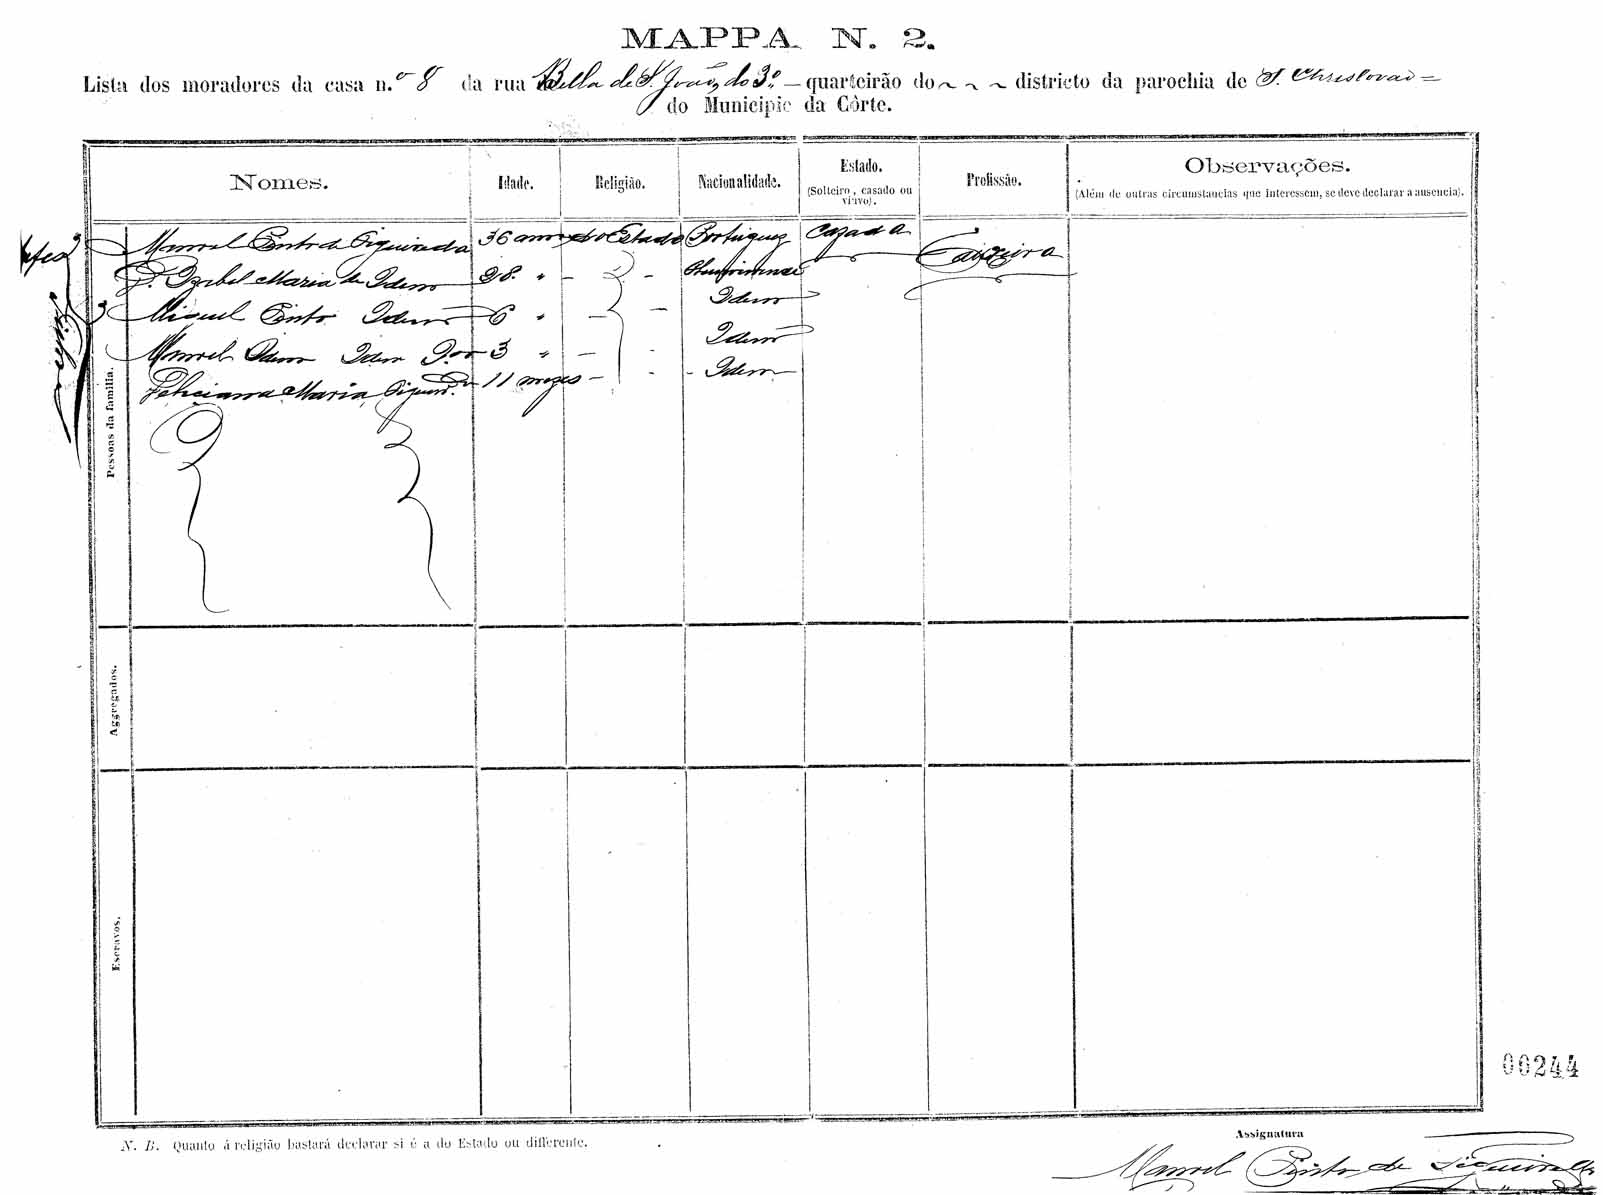 MAPPA N. 2.
Lista dos moradores da casa n.º 8 da rua Bella de S. João, do 3º quarteirão do ~ ~ ~ districto da parochia de S. Christovão =
do Municipio da Côrte.
Nomes. Idade. Religião. Nacionalidade. Estado. (Solteiro, casado ou viuvo). Profissão. Observações. (Além de outras circumstancias que interessem, se deve declarar a ausencia).
Pessoas da familia.
Manoel Pinto de Figueiredo 36 annos do Estado Portuguez Cazado Caixeiro
D. Izabel Maria de Idem 28. " - - Fluminense
Miguel Pinto Idem 6 " - - Idem
Manoel Idem Idem 3 " - - Idem
Feliciana Maria Figueir.do 11 mezes - - Idem
Aggregados.
Escravos.
00244
N. B. Quanto á religião bastará declarar si é a do Estado ou differente.
Assignatura
Manoel Pinto de Figueiredo